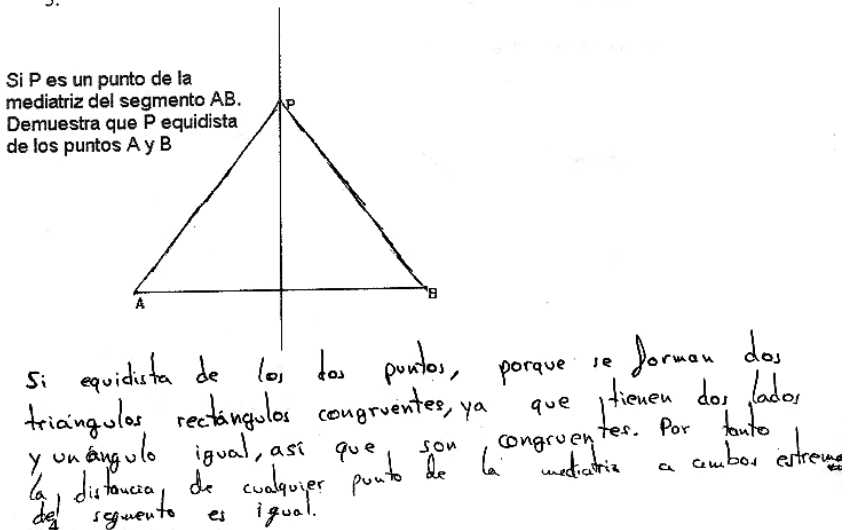 3.
Si P es un punto de la
mediatriz del segmento AB.
Demuestra que P equidista
de los puntos A y B
P
A
B
Si equidista de los dos puntos, porque se forman dos
triángulos rectángulos congruentes, ya que tienen dos lados
y un ángulo igual, así que son congruentes. Por tanto
la distancia de cualquier punto de la mediatriz a ambos estremos
del segmento es igual.